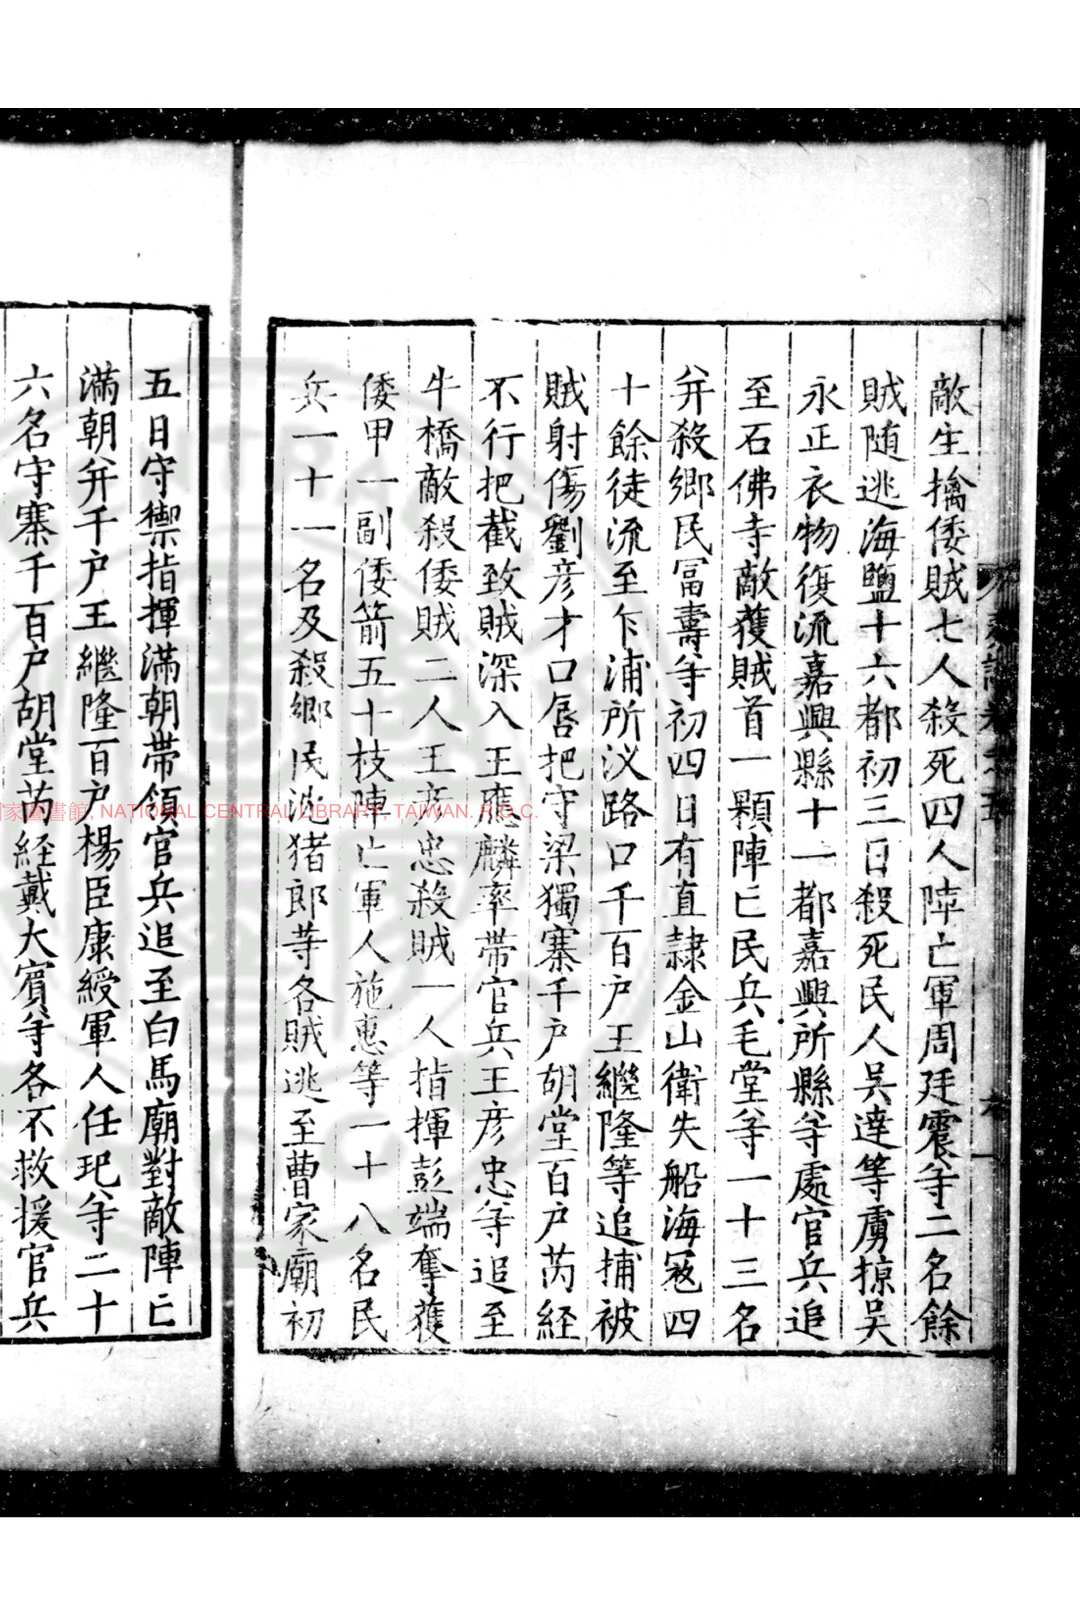 敵生擒倭賊七人殺死四人陣亡軍周廷震等二名餘
賊随逃海鹽十六都初三日殺死民人吳達等虜掠吳
永正衣物復流嘉興縣十一都嘉興所縣等處官兵追
至石佛寺敵獲賊首一顆陣亡民兵毛堂等一十三名
并殺鄉民冨壽等初四日有直隷金山衛失船海寇四
十餘徒流至乍浦所汊路口千百户王繼隆等追捕被
賊射傷劉彦才口唇把守梁獨寨千户胡堂百户芮經
不行把截致賊深入王應麟率帶官兵王彦忠等追至
牛橋敵殺倭賊二人王彦忠殺賊一人指揮彭端奪獲
倭甲一副倭箭五十枝陣亡軍人施惠等一十八名民
兵一十一名及殺鄉民沈猪郎等各賊逃至曹家廟初
五日守禦指揮滿朝帶領官兵追至白馬廟對敵陣亡
滿朝并千户王繼隆百户楊臣康綬軍人任玘等二十
六名守寨千百户胡堂芮經戴大賓等各不救援官兵
國家圖書館, NATIONAL CENTRAL LIBRARY, TAIWAN. R.O.C.